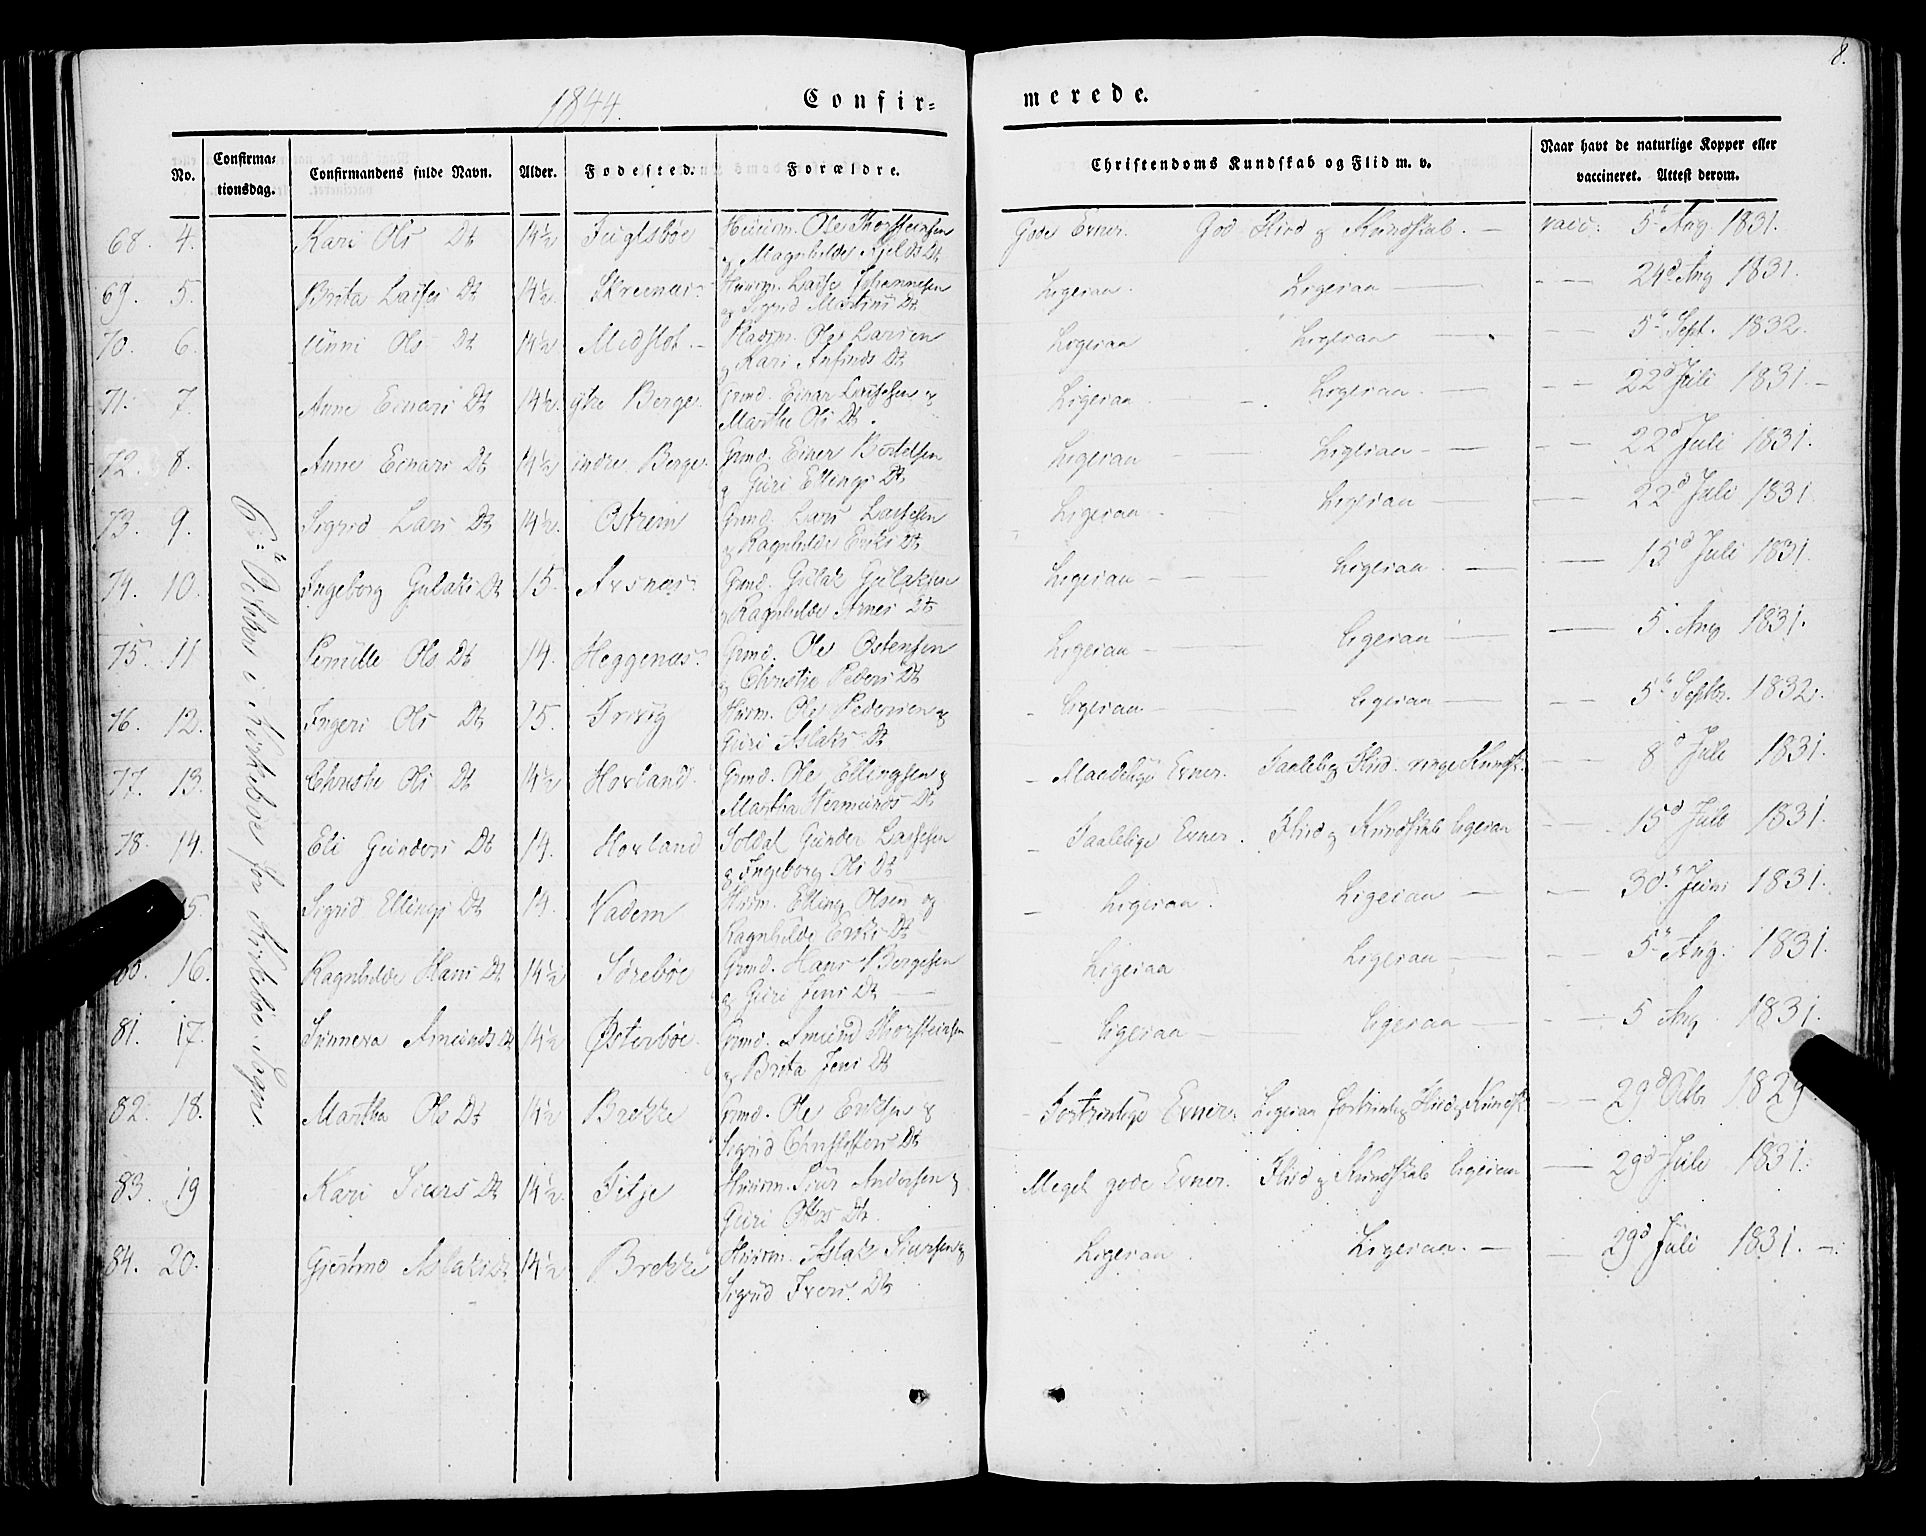 8.
1844.
Confir-
merede.
No.
Confirma-
tionsdag.
Confirmandens fulde Navn.
Alder.
Fødested.
Forældre.
Christendoms Kundskab og Flid m. v.
Naar havt de naturlige Kopper eller
vaccineret. Attest derom.
6te Octbr i Kirkebøe for Kirkebøe Sogn
68. 4. Kari Ols Dt 14½ Fuglsbøe Huusm. Ole Thorsteinsen
og Magnhilde Kjelds Dt
Gode Evner. God Flid og Kundskab. — vacc: 5te Aug. 1831.
69. 5. Brita Lasses Dt 14½ Skreenæs Huusm. Lasse Johannesen
og Sigrid Martini Dt
Ligesaa. Ligesaa — — 24d Aug 1831.
70. 6. Unni Ols Dt 14½ Midslot. Huusm. Ole Larsen
og Kari Anfinds Dt
Ligesaa Ligesaa — — 5te Sept. 1832.
71. 7. Anne Einars Dt 14½. ytre Berge. Grmd. Einar Lassesen og
Marthe Ols Dt.
Ligesaa. Ligesaa. — — 22d Juli 1831.
72. 8. Anne Einars Dt 14½ indre Berge. Grmd. Einer Bertelsen
og Guri Ellings Dt
Ligesaa — Ligesaa — — 22d Juli 1831.
73. 9. Sigrid Lars Dt 14½. Østrem Grmd. Lars Lassesen
og Ragnhilde Eriks Dt
Ligesaa — Ligesaa — — 22d Juli 1831
74. 10. Ingeborg Gulaks Dt 15. Arsnæs Grmd. Gulak Gulaksen
og Ragnhilde Arnes Dt
Ligesaa — Ligesaa. — — 15d Juli 1831.
75. 11 Pernille Ols Dt 14. Heggenæs. Grmd. Ole Ostensen
og Christie Peders Dt
Ligesaa — Ligesaa — — 5. Aug 1831.
76. 12. Ingeri Ols Dt 15. Huusm. Ole Pedersen og
Guri Aslaks Dt
Ligesaa — Ligesaa — — 5te Septbr. 1832.
77. 13. Christie Ols Dt 14½ Hovland. Grmd. Ole Ellingsen og
Martha Hermunds Dt
Maadelige Evner. Taalelig Flid. ringe Kundsk. — 8d Juli 1831.
78. 14. Eli Gunders Dt 14. Hovland Soldat Gunder Lassesen
og Ingeborg Ols Dt
Taalelige Evner. Flid og Kundskab ligesaa — 15d Juli 1831.
15. Sigrid Ellings Dt 14. Vadem Huusm. Elling Olsen og
Ragnhilde Eriks Dt
Ligesaa. Ligesaa — — 30te Juni 1831.
16. Ragnhilde Hans Dt 14½ Sørebøe Grmd. Hans Bergesen
og Guri Jens Dt —
Ligesaa Ligesaa — — 5te Aug. 1831.
81. 17. Sunneva Amunds Dt 14½ Østerbøe. Grmd. Amund Thorsteinsen
og Brita Jens Dt
Ligesaa Ligesaa — — 5 Aug 1831.
82. 18. Martha Ols Dt 14½ Brekke Grmd. Ole Eriksen og
Sigrid Christophers Dt
Fortrinlige Evner. Ligesaa fortrinlig Flid og Kundsk. — 29d Octbr 1829.
83. 19 Kari Siurs Dt 14½. Titje Huusm. Siur Andersen og
Guri Dt.
Meget gode Evner. Flid og Kundskab ligesaa — 29d Juli 1831.
84. 20. Giertrud Aslaks Dt 14½ Brekke Huusm. Aslak Siursen og
Sigrid Ivers Dt
Ligesaa Ligesaa. — — 29d Juli 1831. —